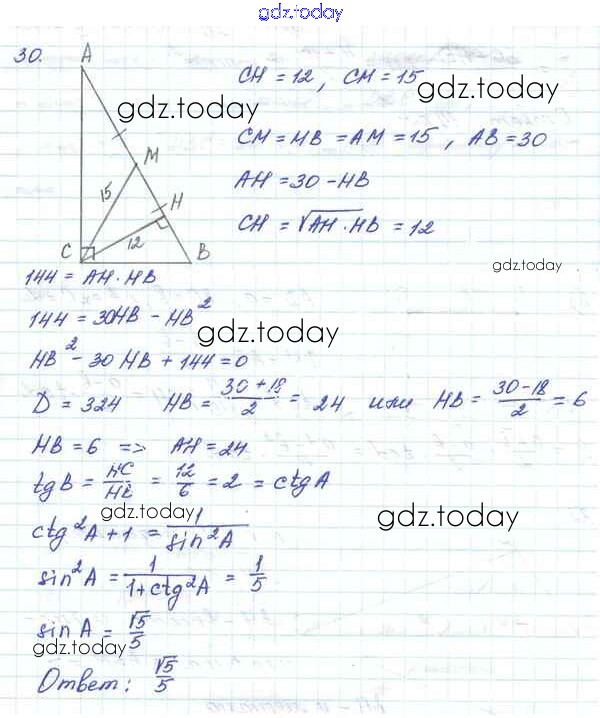 gdz.today
30.
A
CH = 12, CM = 15
gdz.today
gdz.today
CM = MB = AM = 15, AB = 30
M
AH = 30 - HB
15
H
CH = √AH·HB = 12
C
12
B
gdz.today
144 = AH·HB
144 = 30HB - HB²
gdz.today
HB² - 30HB + 144 = 0
D = 324 HB = (30+18)/2 = 24 или HB = (30-18)/2 = 6
HB = 6 => AH = 24
tgB = HC/HB = 12/6 = 2 = ctgA
gdz.today
gdz.today
ctg²A + 1 = 1/sin²A
sin²A = 1/(1+ctg²A) = 1/5
sinA = √5/5
gdz.today
Ответ: √5/5